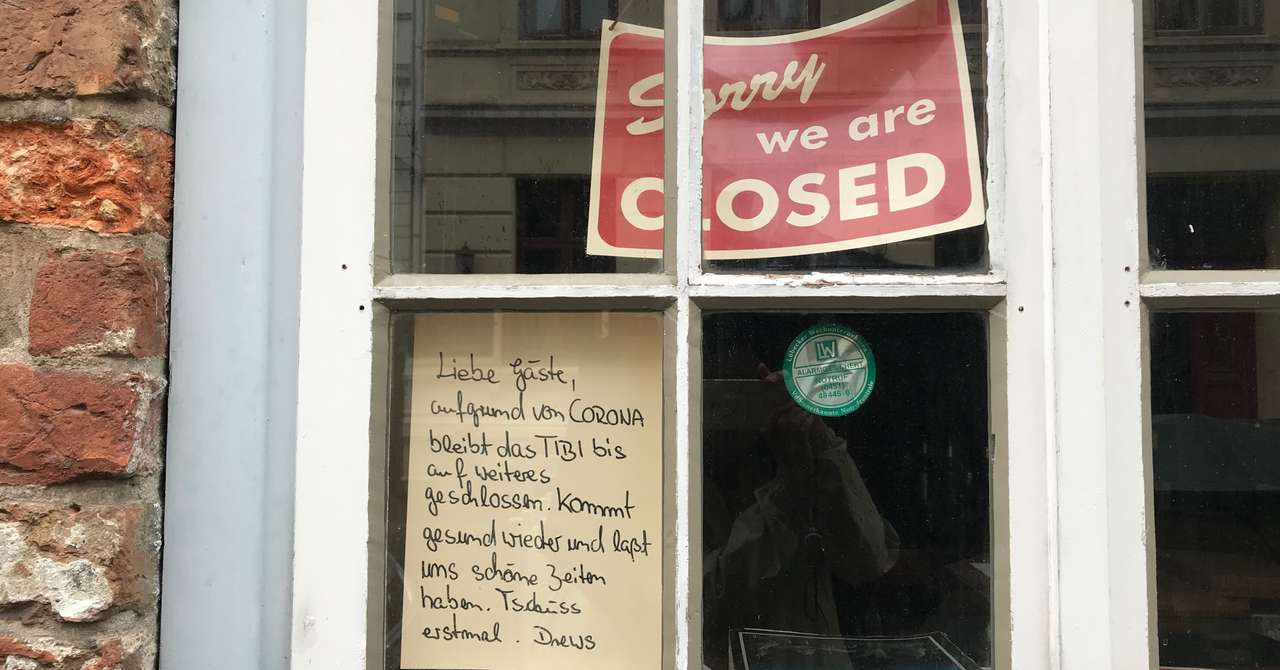 Sorry
we are
CLOSED
Liebe Gäste,
aufgrund von CORONA
bleibt das TIBI bis
auf weiteres
geschlossen. Kommt
gesund wieder und laßt
uns schöne Zeiten
haben. Tschüss
erstmal. Drews
LW
ALARMGESICHERT
NOTRUF
(0451)